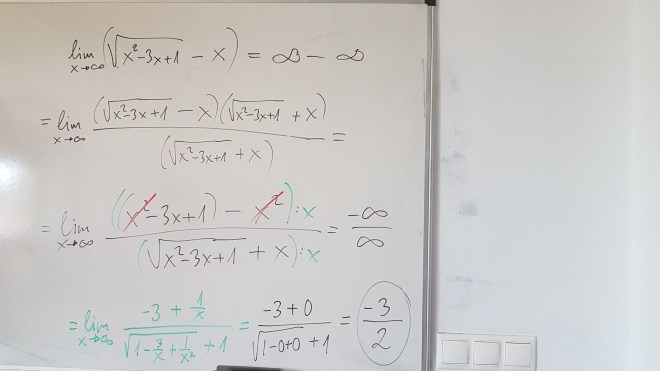 lim x→∞ (√(x²-3x+1) - x) = ∞ - ∞
= lim x→∞ (√(x²-3x+1) - x)(√(x²-3x+1) + x) / (√(x²-3x+1) + x) =
= lim x→∞ ((x²-3x+1) - x²):x / (√(x²-3x+1) + x):x = -∞/∞
= lim x→∞ (-3 + 1/x) / (√(1-3/x+1/x²) + 1) = (-3+0) / (√(1-0+0) + 1) = -3/2